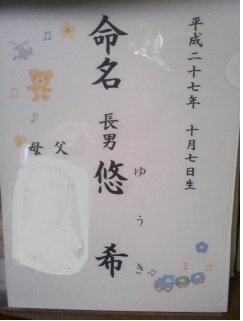 平成二十七年 十月七日生
命名 長男 悠希
ゆうき
父
母